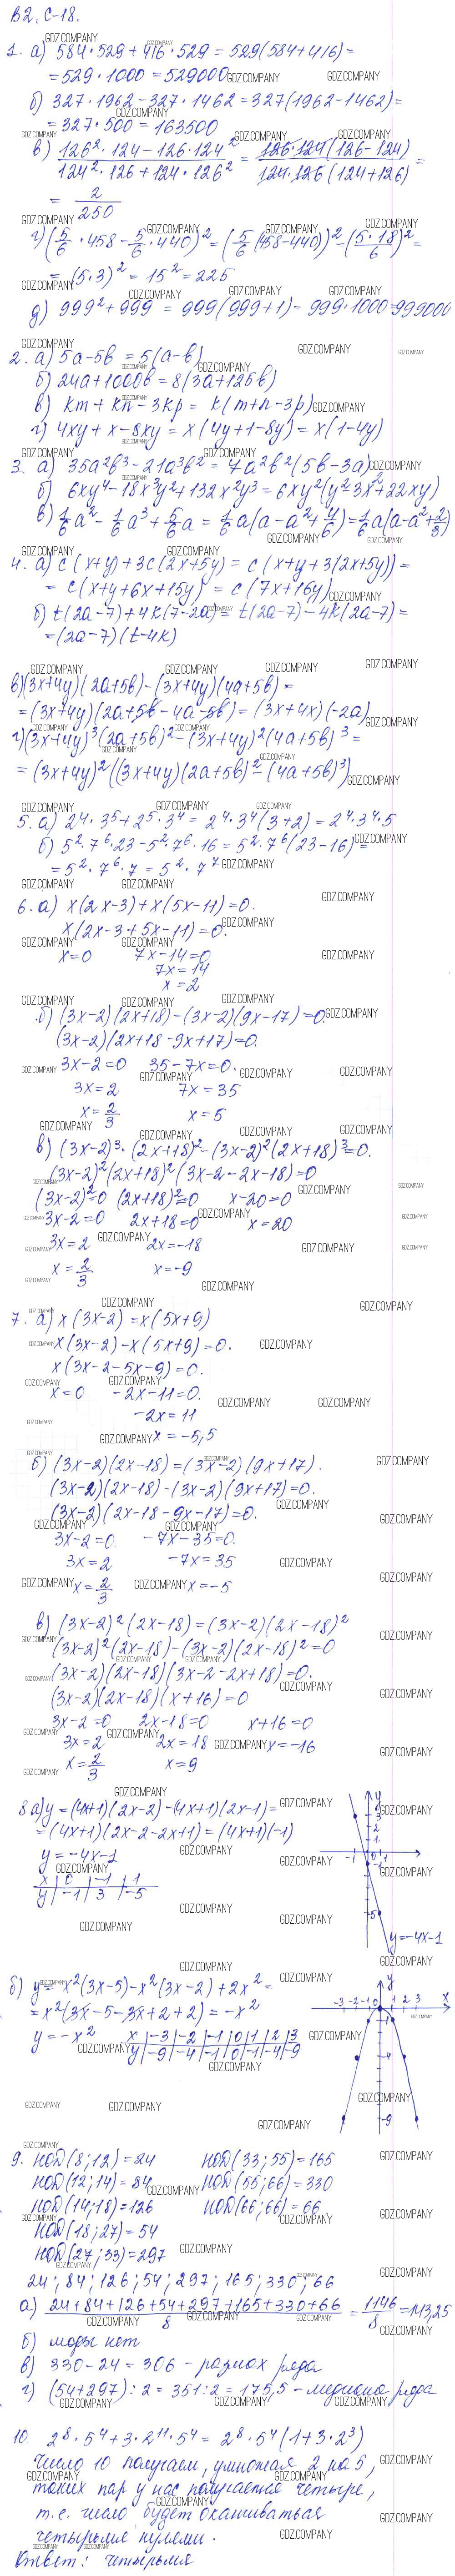 В2, С-18.
1. а) 584·529 + 416·529 = 529(584+416) =
= 529·1000 = 529000
б) 327·1962 - 327·1462 = 327(1962-1462) =
= 327·500 = 163500
в) (126²·124 - 126·124²)/(124²·126 + 124·126²) = 126·124(126-124)/124·126(124+126) =
= 2/250
г) (5/6·458 - 5/6·440)² = (5/6(458-440))² - (5·18/6)² =
= (5·3)² = 15² = 225
д) 999² + 999 = 999(999+1) = 999·1000 = 999000
2. а) 5a-5b = 5(a-b)
б) 24a+1000b = 8(3a+125b)
в) km + kn - 3kp = k(m+n-3p)
г) 4xy + x - 8xy = x(4y+1-8y) = x(1-4y)
3. а) 35a²b³ - 21a³b² = 7a²b²(5b-3a)
б) 6xy⁴ - 18x³y² + 132x²y³ = 6xy²(y²-3x²+22xy)
в) 1/6a² - 1/6a³ + 5/6a = 1/6a(a-a²+4/6) = 1/6a(a-a²+2/3)
4. а) c(x+y) + 3c(2x+5y) = c(x+y+3(2x+5y)) =
= c(x+y+6x+15y) = c(7x+16y)
б) t(2a-7)+4k(7-2a) = t(2a-7) - 4k(2a-7) =
= (2a-7)(t-4k)
в) (3x+4y)(2a+5b) - (3x+4y)(4a+5b) =
= (3x+4y)(2a+5b-4a-5b) = (3x+4x)(-2a)
г) (3x+4y)³(2a+5b)² - (3x+4y)²(4a+5b)³ =
= (3x+4y)²((3x+4y)(2a+5b)² - (4a+5b)³)
5. а) 2⁴·3⁵ + 2⁵·3⁴ = 2⁴·3⁴(3+2) = 2⁴·3⁴·5
б) 5²·7⁶·23 - 5²·7⁶·16 = 5²·7⁶(23-16) =
= 5²·7⁶·7 = 5²·7⁷
6. а) x(2x-3)+x(5x-11) = 0.
x(2x-3+5x-11) = 0.
x=0 7x-14=0
7x=14
x=2
б) (3x-2)(2x+18) - (3x-2)(9x-17) = 0.
(3x-2)(2x+18-9x+17) = 0.
3x-2=0 35-7x=0.
3x=2 7x=35
x=2/3 x=5
в) (3x-2)³·(2x+18)² - (3x-2)²(2x+18)³ = 0.
(3x-2)²(2x+18)²(3x-2-2x-18) = 0
(3x-2)²=0 (2x+18)²=0 x-20=0
3x-2=0 2x+18=0 x=20
3x=2 2x=-18
x=2/3 x=-9
7. а) x(3x-2) = x(5x+9)
x(3x-2) - x(5x+9) = 0.
x(3x-2-5x-9) = 0.
x=0 -2x-11=0.
-2x=11
x=-5,5
б) (3x-2)(2x-18) = (3x-2)(9x+17).
(3x-2)(2x-18) - (3x-2)(9x+17) = 0.
(3x-2)(2x-18-9x-17) = 0.
3x-2=0. -7x-35=0.
3x=2 -7x=35
x=2/3 x=-5
в) (3x-2)²(2x-18) = (3x-2)(2x-18)²
(3x-2)²(2x-18) - (3x-2)(2x-18)² = 0
(3x-2)(2x-18)(3x-2-2x+18) = 0.
(3x-2)(2x-18)(x+16) = 0
3x-2=0 2x-18=0 x+16=0
3x=2 2x=18 x=-16
x=2/3 x=9
8 а) y = (4x+1)(2x-2) - (4x+1)(2x-1) =
= (4x+1)(2x-2-2x+1) = (4x+1)(-1)
y = -4x-1
x | 0 | -1 | 1
y | -1 | 3 | -5
y=-4x-1
б) y = x²(3x-5) - x²(3x-2) + 2x² =
= x²(3x-5-3x+2+2) = -x²
y = -x²
x | -3 | -2 | -1 | 0 | 1 | 2 | 3
y | -9 | -4 | -1 | 0 | -1 | -4 | -9
9. НОД(8;12)=24 НОД(33;55)=165
НОД(12;14)=84 НОД(55;66)=330
НОД(14;18)=126 НОД(66;66)=66
НОД(18;27)=54
НОД(27;33)=297
24; 84; 126; 54; 297; 165; 330; 66
а) (24+84+126+54+297+165+330+66)/8 = 1146/8 = 143,25
б) моды нет
в) 330-24 = 306 - размах ряда
г) (54+297):2 = 351:2 = 175,5 - медиана ряда
10. 2⁸·5⁴ + 3·2¹¹·5⁴ = 2⁸·5⁴(1+3·2³)
Число 10 получаем, умножая 2 на 5,
таких пар у нас получается четыре,
т.е. число будет оканчиваться
четырьмя нулями.
Ответ: четырьмя